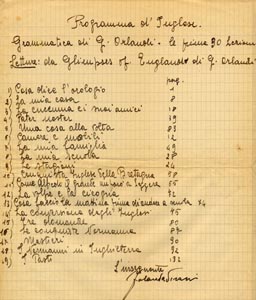 Programma d'Inglese.
Grammatica di G. Orlandi - le prime 30 lezioni
Letture: da Glimpses of England di G. Orlandi
pag.
1) Cosa dice l'orologio 1
2) La mia casa 8
3) La cucina e i miei amici 18
4) Pater noster 39
5) Una cosa alla volta 83
6) Camere e mobili 12
7) La mia famiglia 49
8) La mia scuola 28
9) Le stagioni 24
10) Conquista Inglese della Bretagna 58
11) Come Alfredo il grande imparò a leggere 65
12) La volpe e la cicogna 92
13) Cosa faccio la mattina prima di andare a scuola 34
14) La conversione degli Inglesi 45
15) Tre domande 80
16) La conquista Normanna 87
17) Mestieri 90
18) I Normanni in Inghilterra 92
19) I Pasti 132
L'insegnante